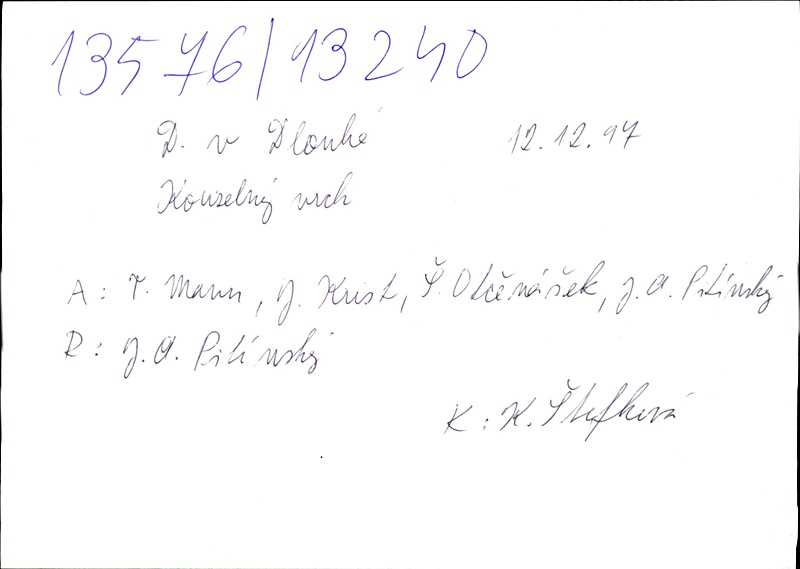 13576/13240
D. v Dlouhé 12.12.97
Kouzelný vrch
A: T. Mann, J. Krist, Š. Otčenášek, J. A. Pitínský
R: J. A. Pitínský
K: K. Štefková